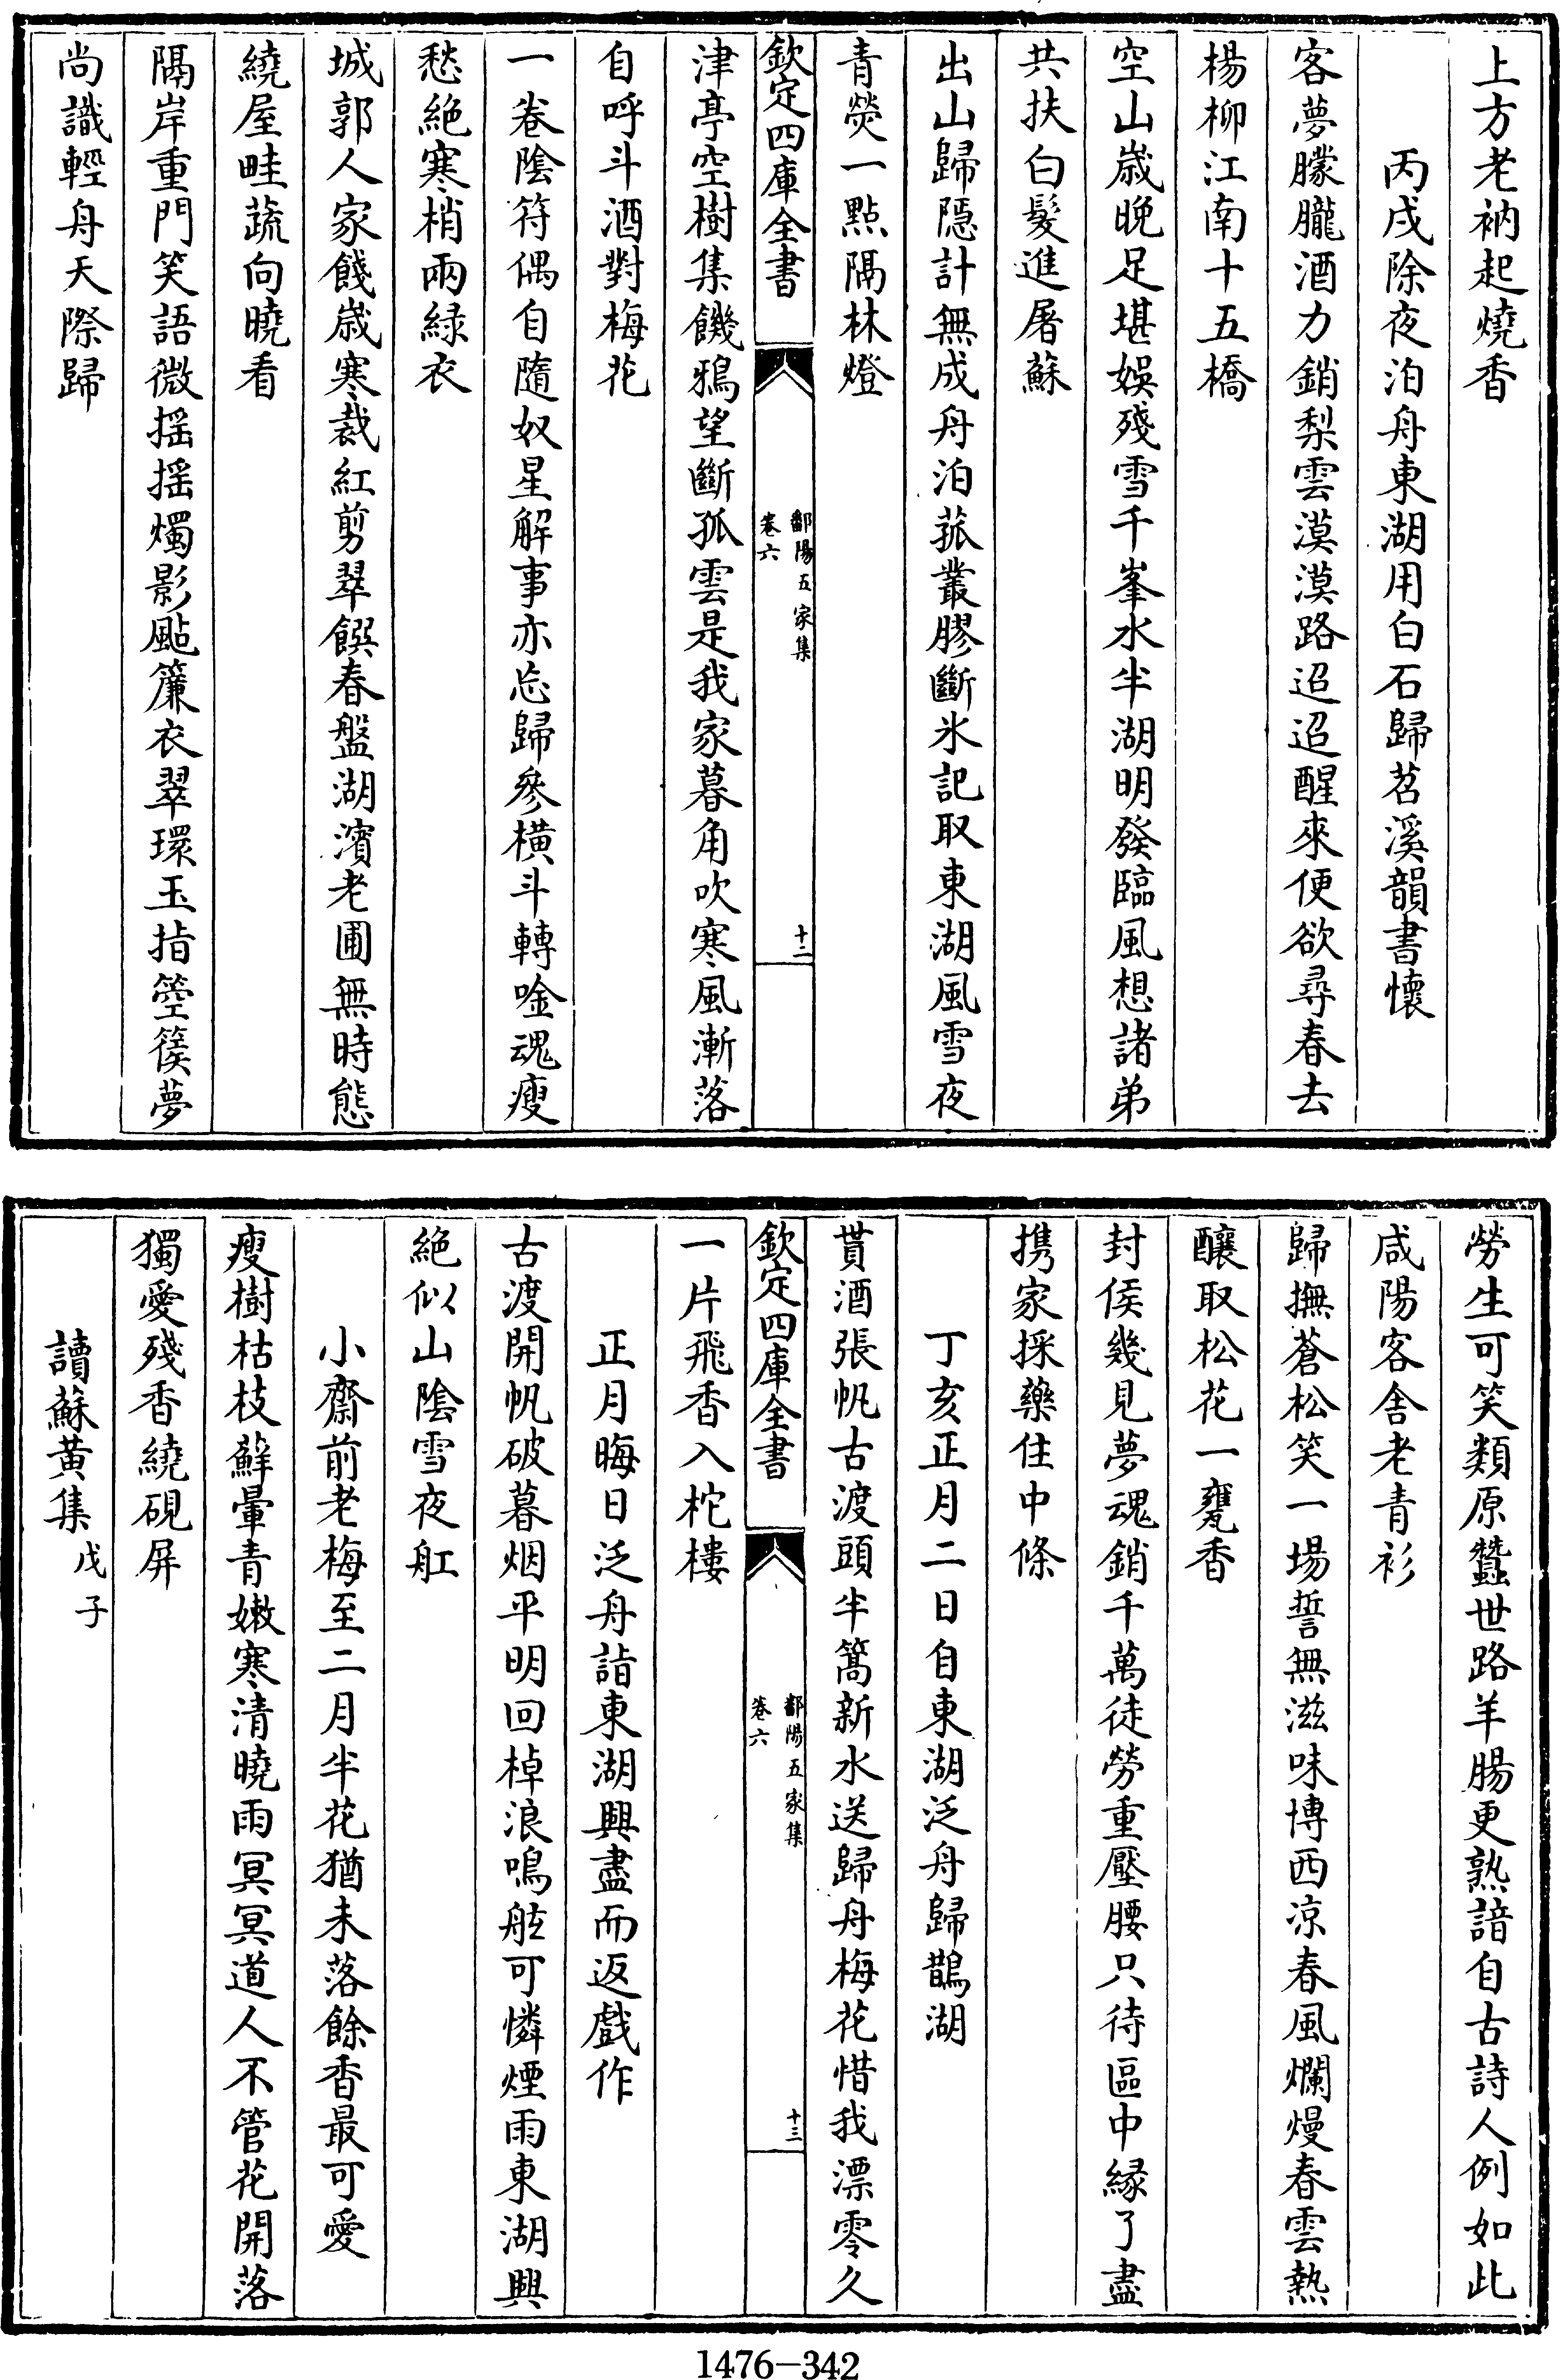 上方老衲起燒香
丙戌除夜泊舟東湖用白石歸苕溪韻書懷
客夢朦朧酒力銷梨雲漠漠路迢迢醒來便欲尋春去
楊柳江南十五橋
空山嵗晚足堪娛殘雪千峯水半湖明發臨風想諸弟
共扶白髮進屠蘇
出山歸隠計無成舟泊菰叢膠斷氷記取東湖風雪夜
青熒一點隔林燈
欽定四庫全書
鄱陽五家集
卷六
十二
津亭空樹集饑鴉望斷孤雲是我家暮角吹寒風漸落
自呼斗酒對梅花
一卷陰符偶自隨奴星解事亦忘歸參橫斗轉唫魂瘦
愁絶寒梢兩緑衣
城郭人家餞嵗寒裁紅剪翠饌春盤湖濱老圃無時態
繞屋畦蔬向曉看
隔岸重門笑語微摇摇燭影颭簾衣翠環玉指箜篌夢
尚識輕舟天際歸
勞生可笑類原蠶世路羊腸更熟諳自古詩人例如此
咸陽客舎老青衫
歸撫蒼松笑一場誓無滋味博西凉春風爛熳春雲熱
釀取松花一甕香
封侯幾見夢魂銷千萬徒勞重壓腰只待區中縁了盡
携家採藥住中條
丁亥正月二日自東湖泛舟歸鵲湖
貰酒張帆古渡頭半篙新水送歸舟梅花惜我漂零久
一片飛香入柁樓
欽定四庫全書
鄱陽五家集
卷六
十三
正月晦日泛舟詣東湖興盡而返戲作
古渡開帆破暮烟平明回棹浪鳴舷可憐煙雨東湖興
絶似山陰雪夜舡
小齋前老梅至二月半花猶未落餘香最可愛
瘦樹枯枝蘚暈青嫩寒清曉雨冥冥道人不管花開落
獨愛殘香繞硯屏
讀蘇黄集戊子
1476-342